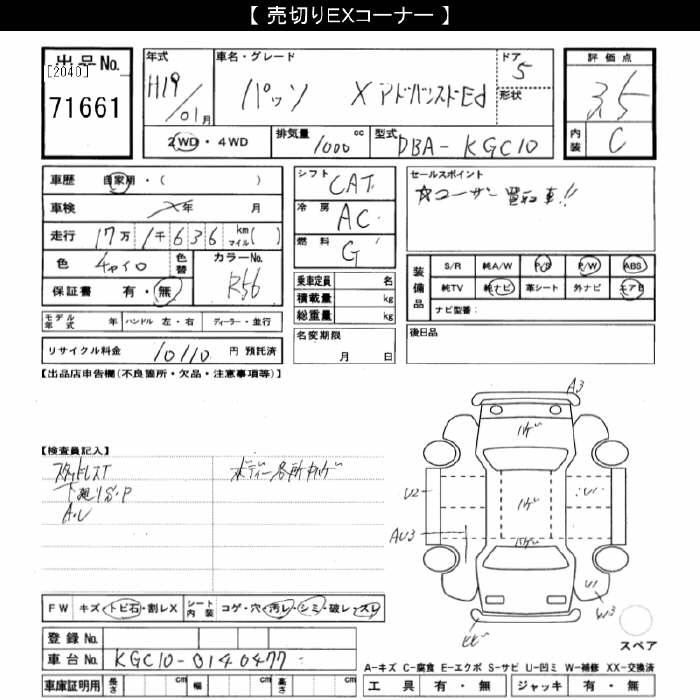 【 売切りEXコーナー 】
出品No.
[2040]
71661
年式
H19/01月
車名・グレード
パッソ X アドバンスドEd
ドア
5
形状
2WD・4WD
排気量 1000 cc
型式 DBA-KGC10
評価点
3.5
内装 C
車歴 自家用・( )
車検 年 月
走行 17万1千636 km マイル( )
色 チャイロ 色替
カラーNo. R56
保証書 有・無
モデル年式 年 ハンドル 左・右 ディーラー・並行
リサイクル料金 10110 円 預託済
シフト CAT
冷房 AC
燃料 G
乗車定員 名
積載量 kg
総重量 kg
名変期限
月 日
セールスポイント
☆ユーザー買取車!!
装備品
S/R 純A/W P/S P/W ABS
純TV 純ナビ 革シート 外ナビ エアB
ナビ型番:
後日品
【出品店申告欄(不良箇所・欠品・注意事項等)】
【検査員記入】
スタッドレスT
下廻りS・P
A・U
ボディー各所
A3
U2
U1
AU3
U1
W3
FW キズ・トビ石・割レX
シート内装 コゲ・穴・汚レ・シミ・破レ・スレ
登録No.
車台No. KGC10-0140477
車庫証明用 長さ cm 幅 cm 高さ cm
スペア
A-キズ C-腐食 E-エクボ S-サビ U-凹ミ W-補修 XX-交換済
工具 有・無 ジャッキ 有・無